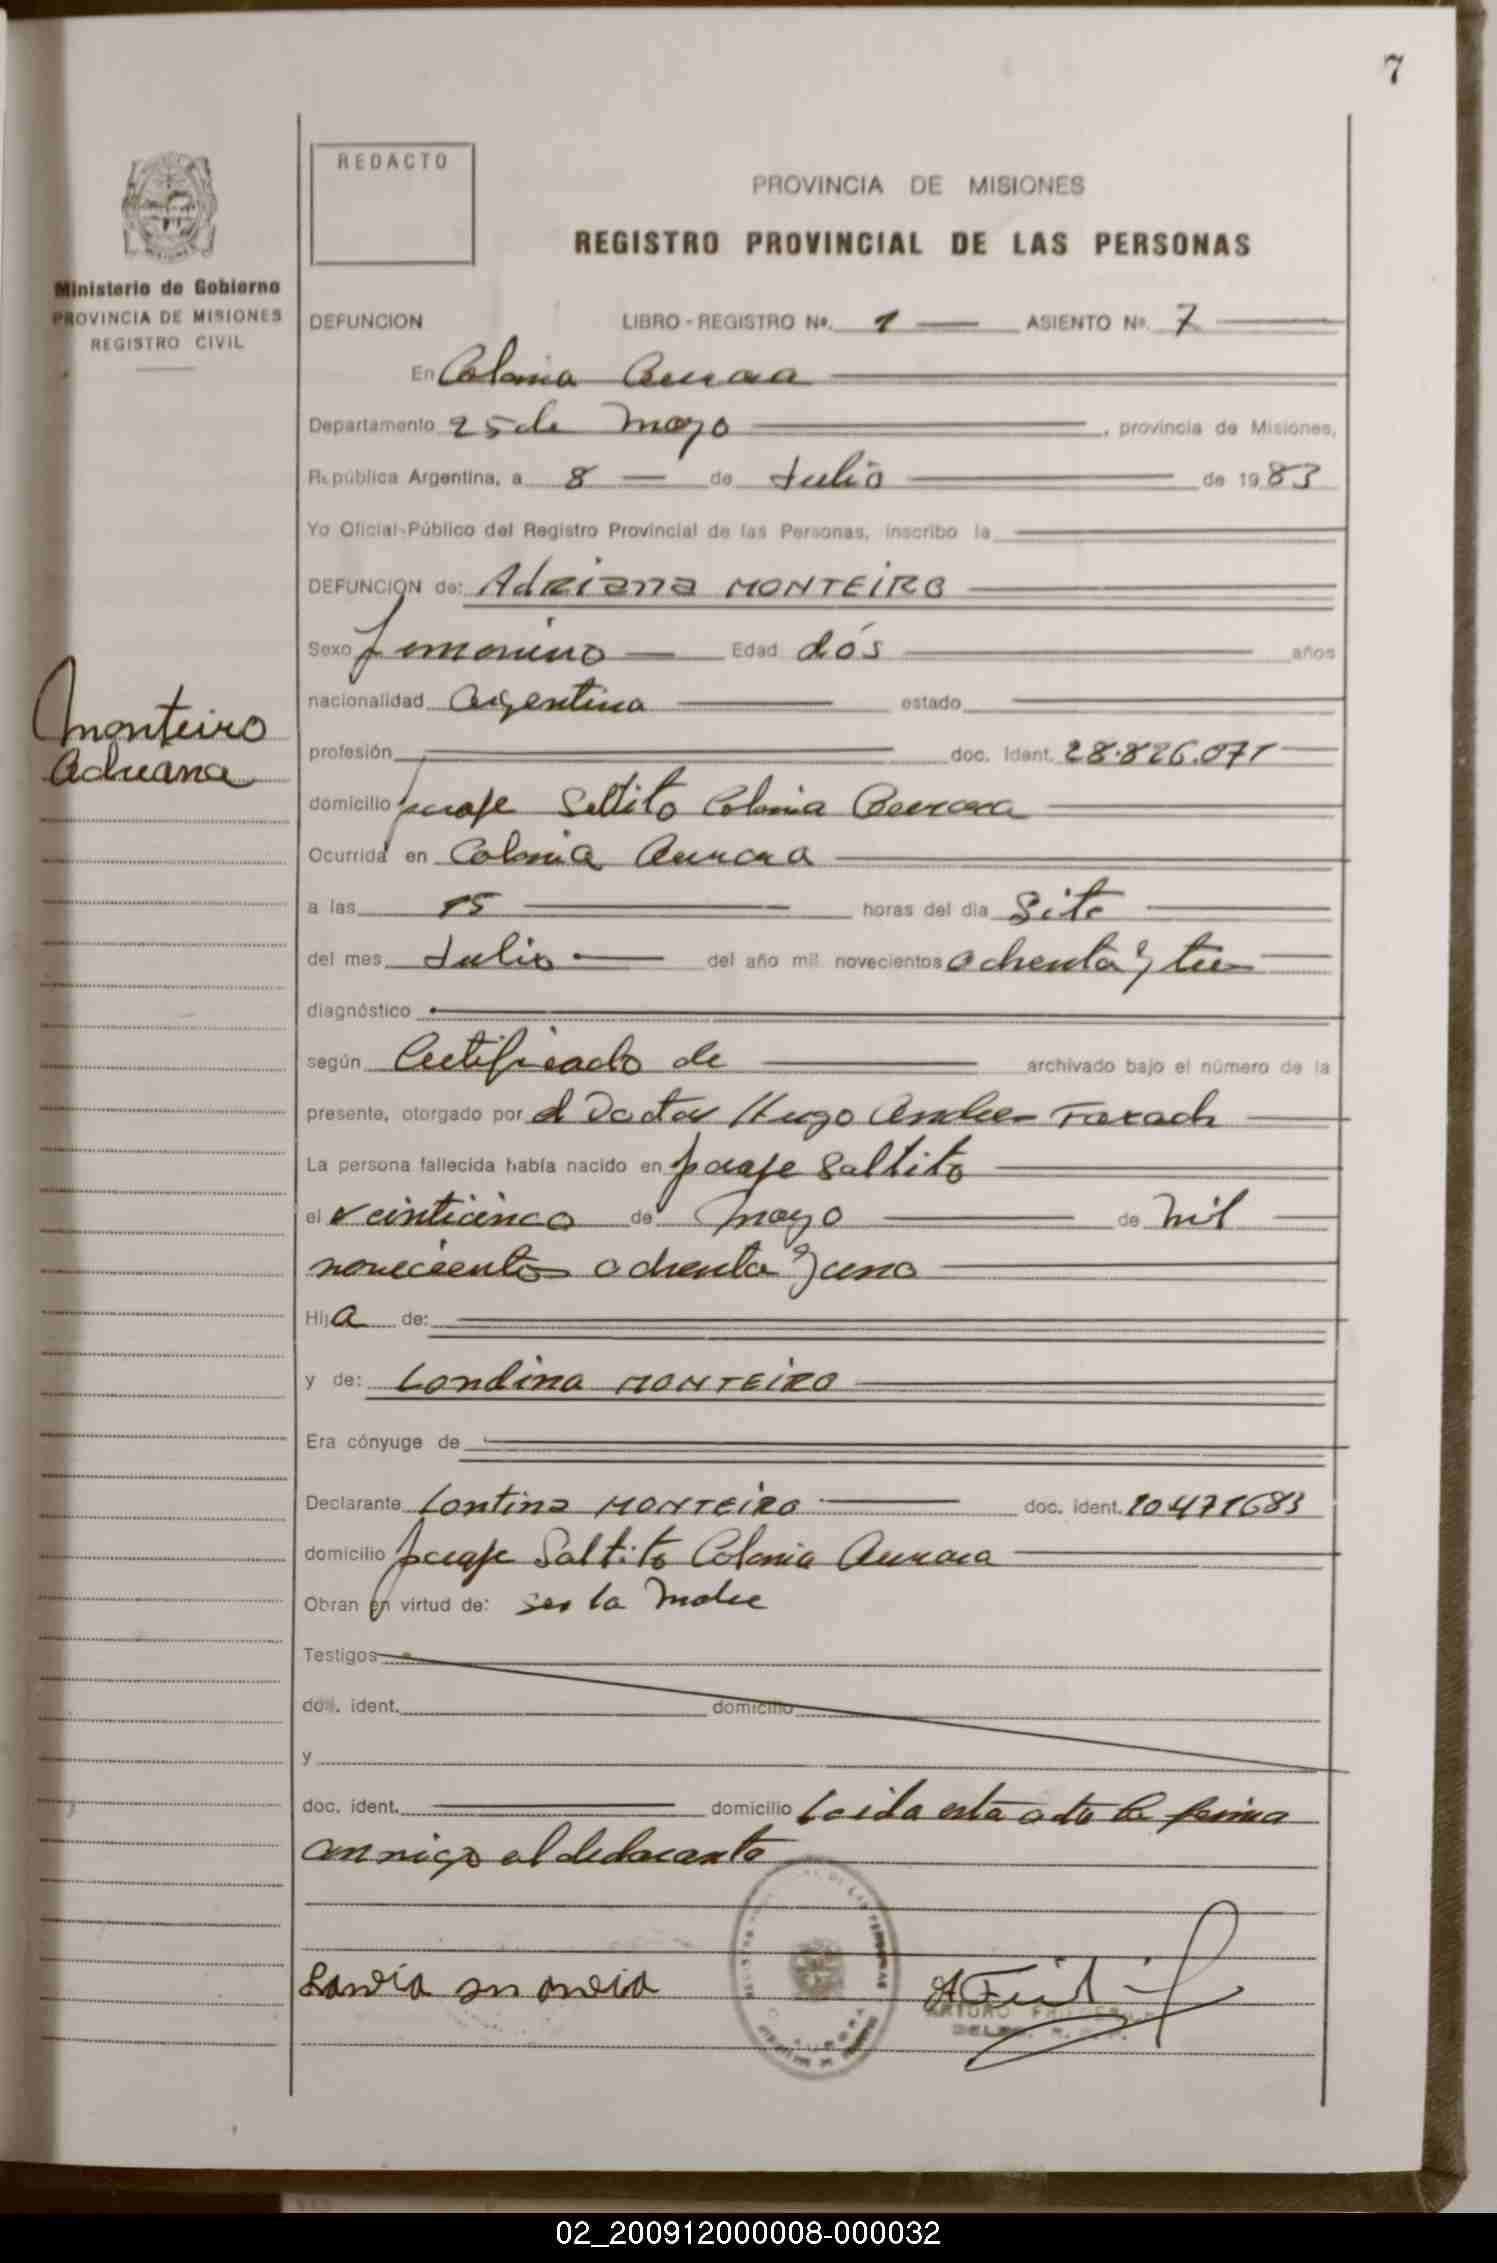 7
REDACTO
PROVINCIA DE MISIONES
REGISTRO PROVINCIAL DE LAS PERSONAS
Ministerio de Gobierno
PROVINCIA DE MISIONES
REGISTRO CIVIL
DEFUNCION LIBRO-REGISTRO Nº. 1 ASIENTO Nº. 7
En Colonia Aurora
Departamento 25 de Mayo, provincia de Misiones,
República Argentina, a 8 de Julio de 1983
Yo Oficial-Público del Registro Provincial de las Personas, inscribo la
DEFUNCION de: Adriana MONTEIRO
Sexo femenino Edad dós años
nacionalidad Argentina estado
Monteiro
Adriana
profesión doc. Ident. 28.826.071
domicilio paraje Saltito Colonia Aurora
Ocurrida en Colonia Aurora
a las 15 horas del día Siete
del mes Julio del año mil novecientos ochenta y tres
diagnóstico
según Certificado de archivado bajo el número de la
presente, otorgado por el Doctor Hugo Andres Farach
La persona fallecida había nacido en paraje Saltito
el veinticinco de Mayo de mil
novecientos ochenta y uno
Hija de:
y de: Londina MONTEIRO
Era cónyuge de
Declarante Lontina MONTEIRO doc. ident. 10.471683
domicilio paraje Saltito Colonia Aurora
Obran en virtud de: ser la Madre
Testigos
doc. ident. domicilio
y
doc. ident. domicilio Leida esta acta la firma
conmigo el declarante
ARTURO
02_200912000008-000032